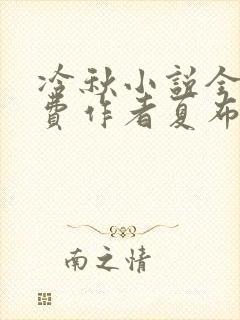 冷秋小说全
费作者夏布
南之情